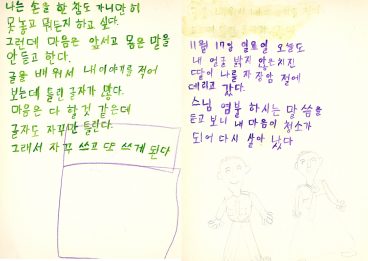 나는 손을 한 참도 가만히
못놓고 뭐든지 하고 싶다.
그런데 마음은 앞서고 몸은 말을
안듣고 한다.
글을 배워서 내이야기를 적어
보는데 틀린 글자가 많다.
마음은 다 할것 같은데
글자도 자꾸만 틀린다.
그래서 자꾸 쓰고 또 쓰게 된다
11월 17일 일요일 오늘도
내 얼굴 밝지 않은지
딸이 나를 자장암 절에
데리고 갔다.
스님 염불 하시는 말씀을
듣고 보니 내 마음이 청소가
되어 다시 살아 났다